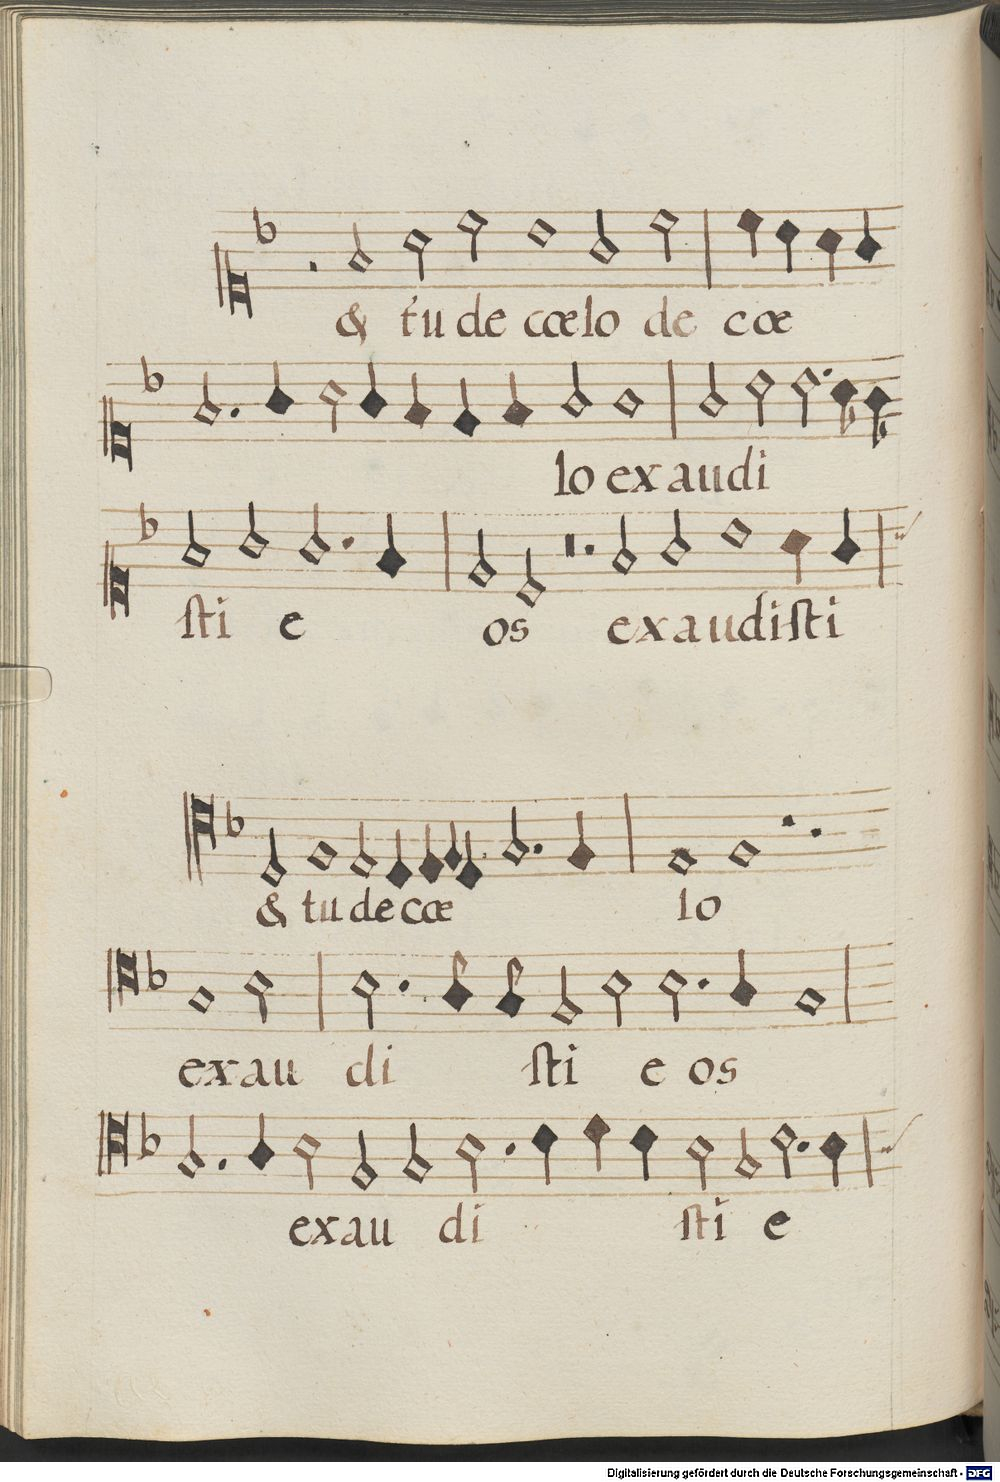 & tu de cœlo de cœ
lo exaudi
sti e os exaudisti
& tu de cœ lo
exau di sti e os
exau di sti e
Digitalisierung gefördert durch die Deutsche Forschungsgemeinschaft - DFG